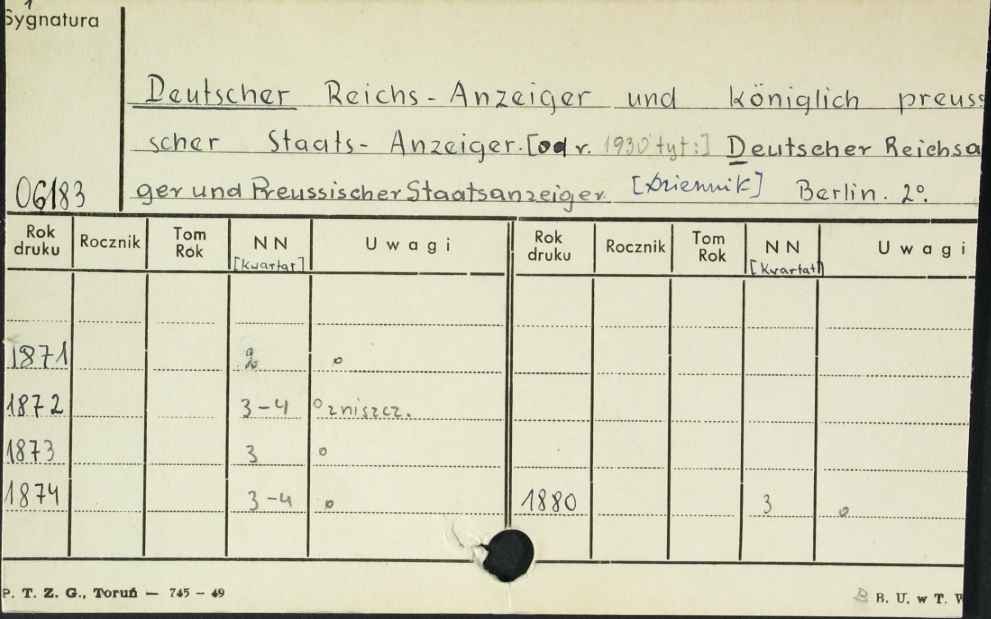 Sygnatura
Deutscher Reichs-Anzeiger und königlich preuss
scher Staats-Anzeiger. [od r. 1930 tyt:] Deutscher Reichsa
06183 ger und Preussischer Staatsanzeiger. [Dziennik] Berlin. 2°.
Rok druku Rocznik Tom Rok NN [Kwartał] Uwagi Rok druku Rocznik Tom Rok NN [Kwartał] Uwagi
1871 2 o
1872 3-4 o zniszcz.
1873 3 o
1874 3-4 o 1880 3 o
P. T. Z. G., Toruń — 745 — 49 B. U. w T. W